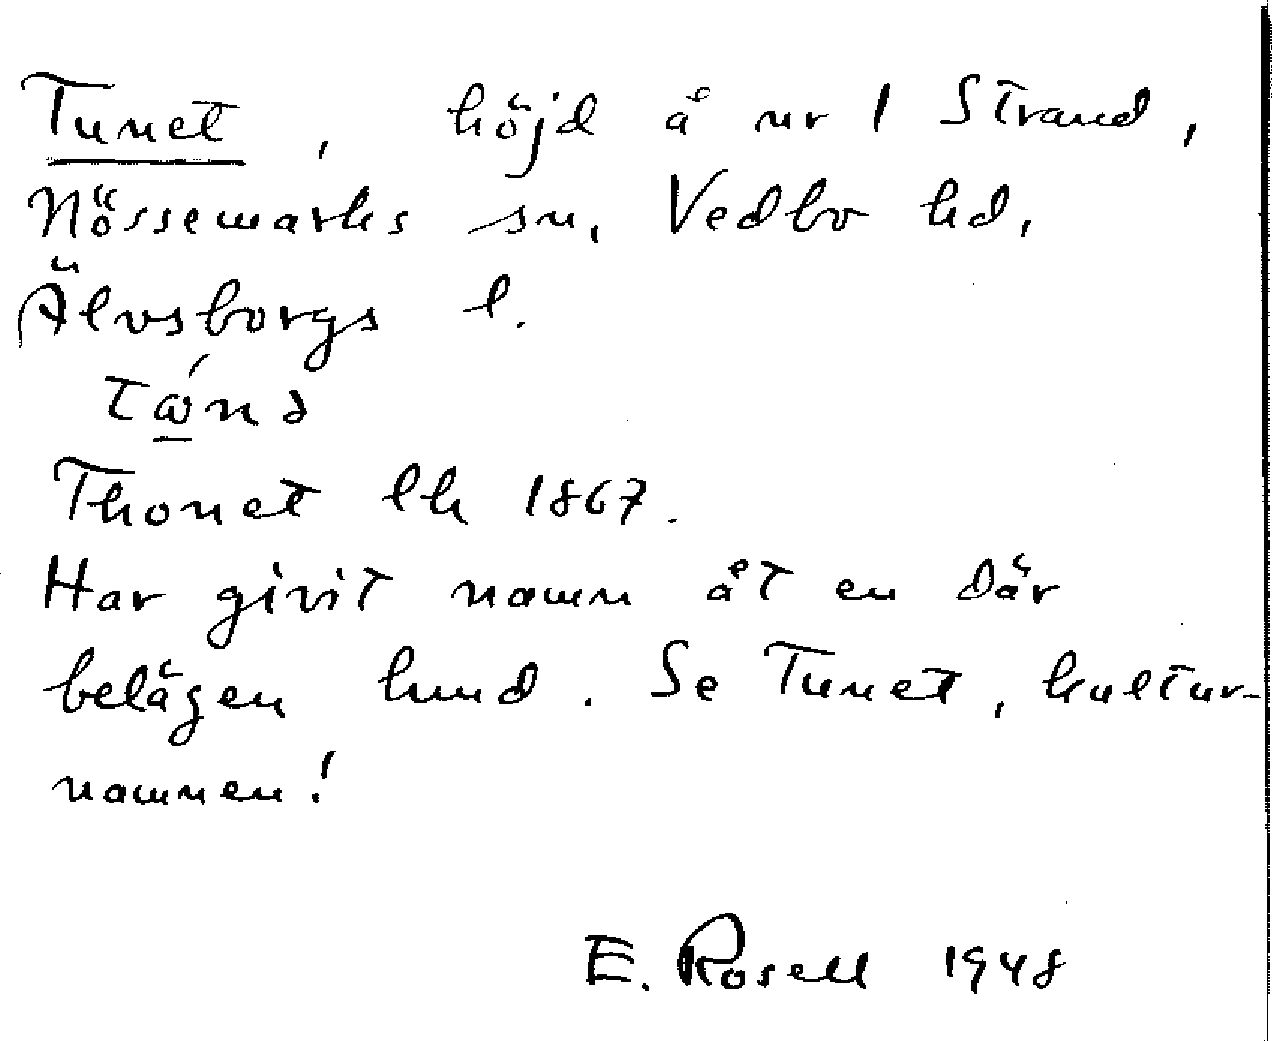 Tunet, höjd å nr 1 Strand,
Nössemarks sn, Vedbo hd,
Älvsborgs l.
Thonet lk 1867.
Har givit namn åt en där
belägen lund. Se Tunet, kultur-
namnen!
E. Rosell 1948